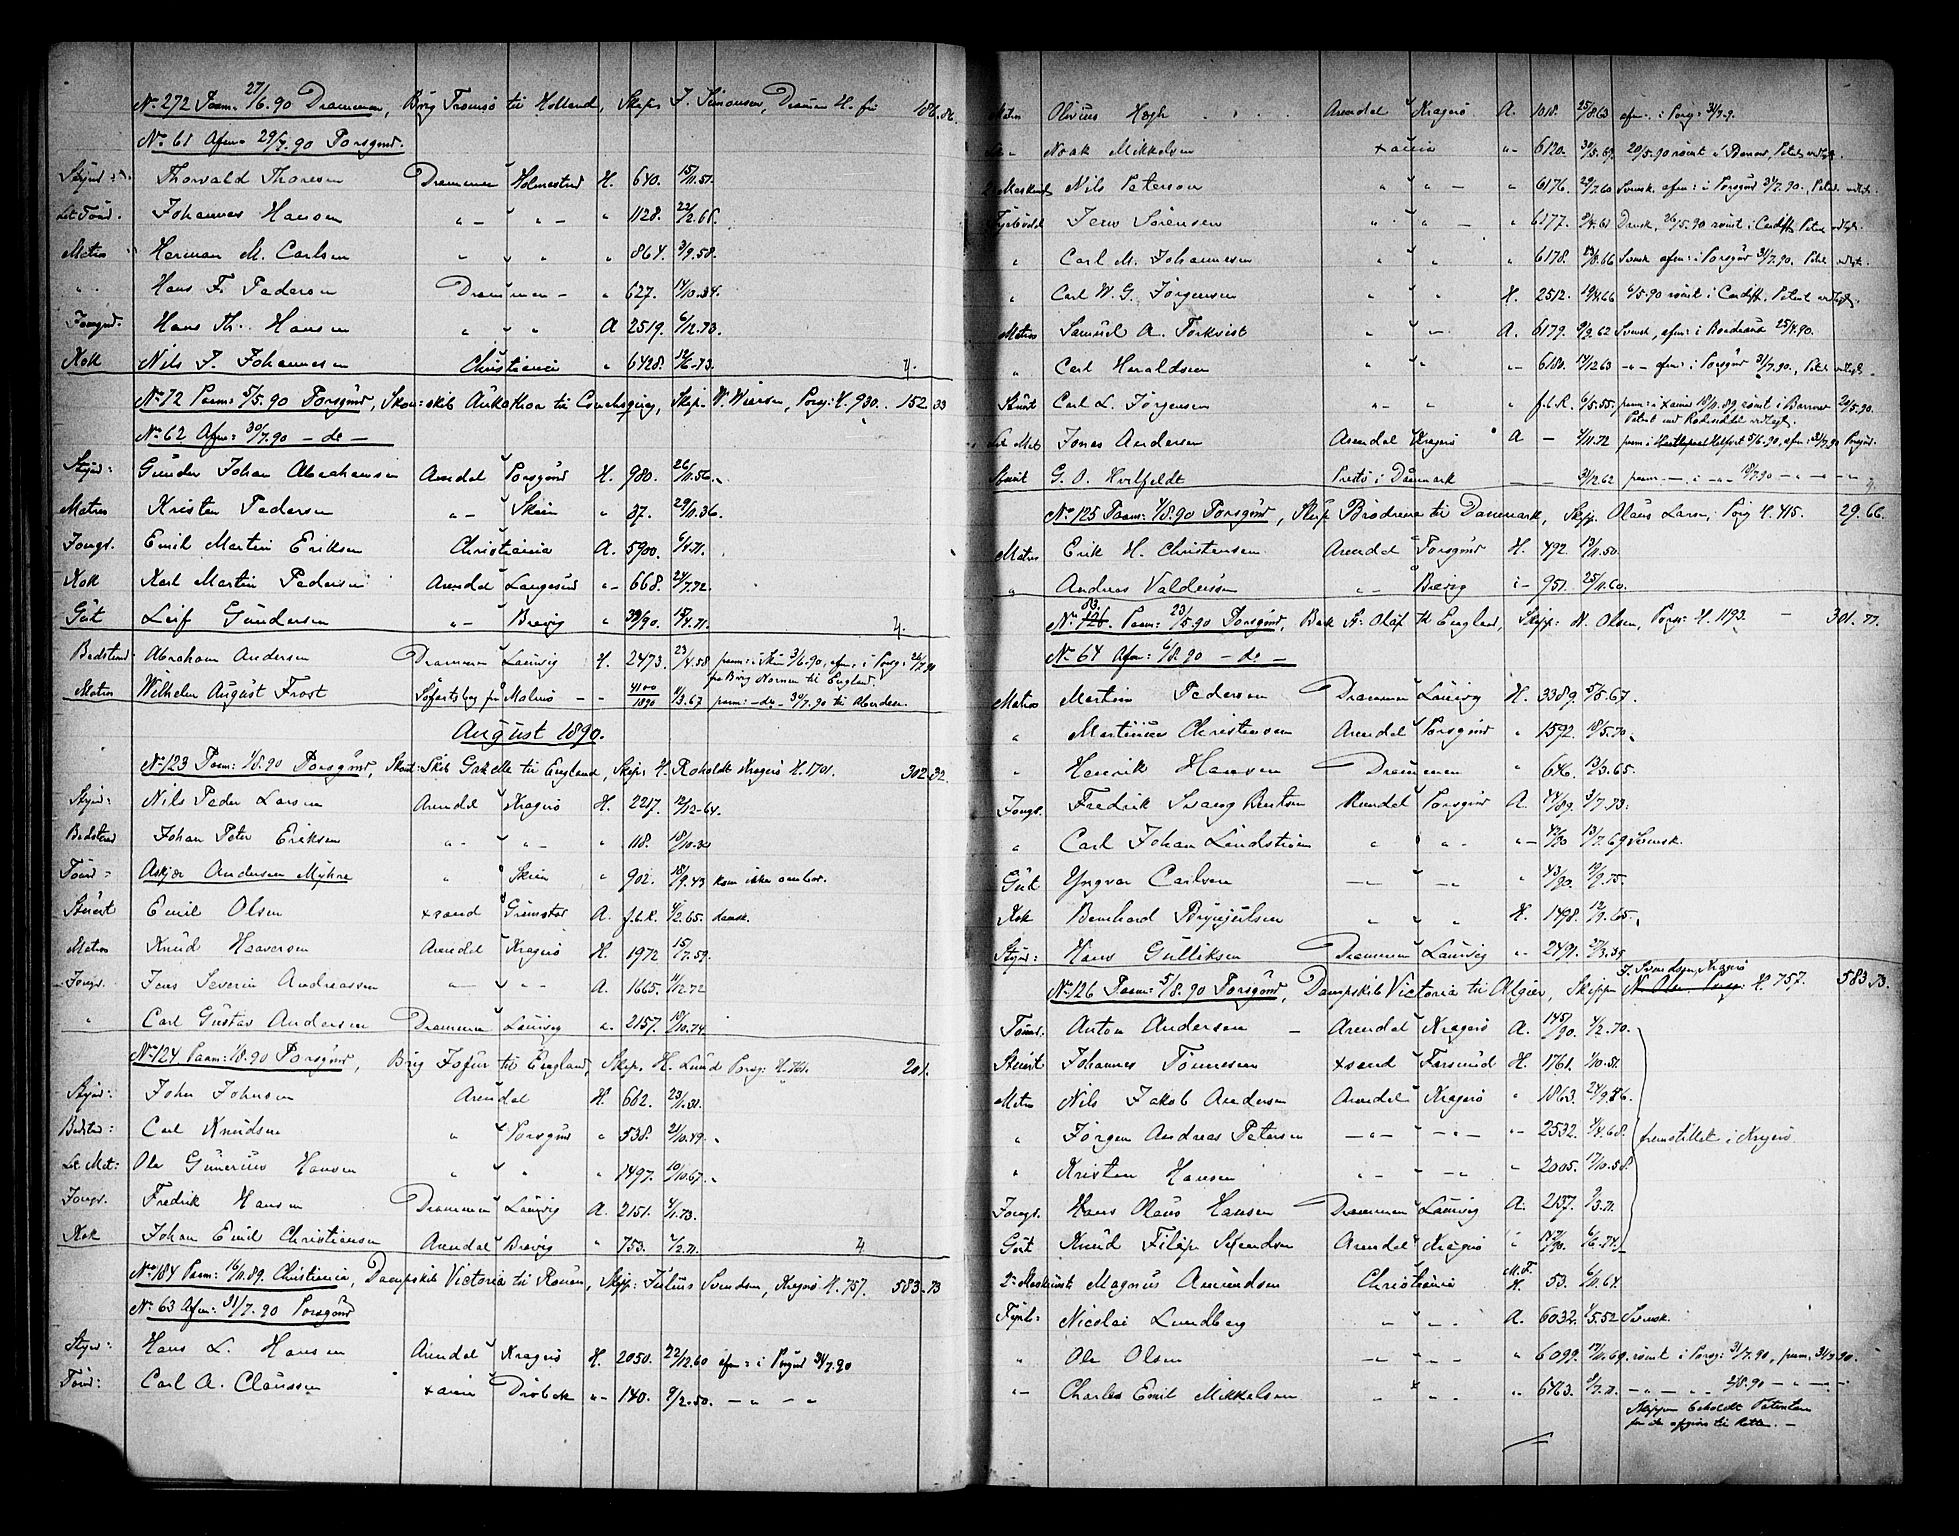 No 272 Paam: 27/6.90 Drammen, Brig Tromsö til Holland, Skip: J. Simonsen, Dramen H. fri 186.86.
No 61 Afm: 29/7.90 Porsgrund.
Thorvald Thoresen Drammen Holmestrand H. 640. 15/11.51.
Let Tömd. Johannes Hansen " - " - " 1128. 22/2.66.
Matros Herman M. Carlsen " " " " 864. 3/9.58.
" Hans F. Pedersen Drammen - " 627. 14/10.34.
Jungm. Hans Th. Hansen " " " A 2519. 6/12.73.
Kok Nils J. Johannesen Christiania " 6428. 12/6.73.
No 72 Paam: 5/5.90 Porsgrund, Skip W. Wiersen, Porsg: H. 930. 152.33
No 62 Afm: 30/7.90 - do -
Styrm: Gunder Johan Abrahamsen Arendal Porsgrund H. 980. 26/11.56.
Matros Kristen Pedersen " - Skien " 37. 29/11.36.
Jungs. Emil Martin Eriksen Christiania A. 5900. 6/4.71.
Kok Karl Martin Pedersen Arendal Langesund " - 668. 24/7.72.
Gut Leif Gundersen " - Brevig " 39/90. 15/4.71.
Bedstmd: Abraham Andersen Drammen Laurvig H. 2473. 23/4.58 paam: i Skien 3/6.90, afm. i Porsg:
fra Brig Nornen til England
Matros Wilhelm August Frost Söfartsbog fra Malmö - - 4100/1890 1/3.67 paam: - do - 30/7.90 til Aberdeen.
August 1890.
No 123 Paam: 1/8.90 Porsgrund, Skon: Skib til England, Skip: H. Roholdt Kragerö H. 1701. 302.32.
Styrm: Nils Peder Larsen Arendal Kragerö H. 2217. 12/12.64.
Bedstmd Johan Peter Eriksen " - " - " 118. 18/10.
Tömd - Askjer Andersen Myhre " Skien " 902. 18/9.43 kom ikke ombord.
Stuert Emil Olsen Xsand Grimstad A. f.b.R. 4/2.65. dansk.
Matros Knud Haaversen Arendal Kragerö H. 1972 15/7.59.
Jungs. Jens Severin Andreassen " - " - A. 1665. 11/12.72
" Carl Gustav Andersen Drammen Laurvig " 2157. 10/10.74.
No 124 Paam: 1/8.90 Porsgrund, Brig til England, Skip. H. Lund Porsg: 201.
Styrm: John Johnsen Arendal H. 662. 23/11.31.
Bedstmd: Carl Knudsen " Porsgrund " 538. 21/10.49.
Let Mat: Ole Gunerius Hansen " " " 1497. 10/10.67.
Jungs. Fredrik Hansen Drammen Laurvig A. 2151. 4/11.73.
Kok Johan Emil Christiansen Arendal Brevig " 753. 4/2.71.
No 184 Paam: 16/11.89. Christiania, Dampskib Victoria til Rouen, Skip: Julius Svendsen, Kragerö H. 757. 583.73
No 63 Afm: 31/7.90 Porsgrund
Styrm: Hans L. Hansen Arendal Kragerö H. 2050. 22/12.60 afm: i Porsgrund 31/7.90
Tömd: Carl A. Claussen Xania Dröbak " - 140. 9/2.50. - " - "
Matros Olevius Høgh Arendal Kragerö A. 1018. 25/8.63 afm. i Porsg: 31/7.9.
Noak Mikkelsen Xania " - 6120. 30/5.69. 20/5.90 römt i Barrow,
2 Maskinst Nils Peterson " " - " 6176. 29/7.60 Svensk. afm: i Porsgrund 31/7.90.,
Fyrböder Jens Sörensen " " - " 6177. Dansk, 26/5.90 römt i Cardiff,
" Carl M. Johannesen " " " 6178. Svensk. afm: i Porsgrund 31/7.90.
" Carl W. G. Jörgensen " " H. 2512. 19/4.66 6/5.90 römt i Cardiff,
Matros Samuel A. Törkvist " " - A. 6179. 9/9.62 Svensk, afm: i Bordeaux 25/4.90.
" Carl Haraldsen " " " - 6180. 14/12.63 - " - afm: i Porsgrund 31/7.90.,
Stuert Carl L. Jörgensen " - " " - f.b.R. 6/5.55. paam: i Xania 18/11.89, römt i Barrow 20/5.90.
Let Mat Jonas Andersen Arendal Kragerö A - 4/11.72 paam i 3/6.90, afm: 31/7.90 Porsgrund.
Stuert G. O. Hvilfeldt Prestö i Danmark - - 31/12.62 paam - " - i - " - 18/7.90 - " - " - "
No 125 Paam: 4/8.90 Porsgrund, Skip Brödrene til Danmark, Skip. Olaus Larsen, Porsg H. 415. 29.66.
Matros Erik H. Christensen Arendal Porsgrund H. 492. 13/11.50.
" Andreas Valdersen " - Brevig " - 951. 25/11.60.
No 83. Paam: 23/5.90 Porsgrund, Bark St: Olaf til England, Skipp: N. Olsen, Porsg: H. 1193. - 301.77.
No 64 Afm: 6/8.90 - do -
Matros Martin Pedersen Drammen Laurvig H. 3389. 5/5.67.
" Martinius Christensen Arendal Porsgrund " 1592. 18/5.70.
" Henrik Hansen Drammen " 646. 13/3.65.
Jungs. Fredrik Svang Bentsen Arendal Porsgrund A. 44/89. 3/7.73.
" Carl Johan Lindström " " - " - 42/90 13/7.69 Svensk.
Gut Yngvar Carlsen - " - - " - " 43/90. 19/9.75.
Kok Bernhard Brynjulsen " " H. 1498. 12/9.65.
Styrm: Hans Gulliksen Drammen Laurvig " - 2491. 27/3.35
J. Svendsen, Kragerö
No 126 Paam: 5/8.90 Porsgrund, Dampskib Victoria til Algier, Skipp N. Olsen Porsg: H. 757. 583.73.
Tömd. Anton Andersen - Arendal Kragerö A. 145/90. 4/2.70.
Stuert Johannes Tönnesen Xsand Farsund H. 1761. 1/10.51.
Matros Nils Jakob Andersen Arendal Kragerö " 1863. 24/9.56.
" Jörgen Andreas Petersen - " - - " - " - 2532. 7/4.68. fremstillet i Kragerö
" Kristen Hansen " - - " " 2005. 17/10.58.
Jungs. Hans Olaus Hansen Drammen Laurvig A. 2137. 9/3.71.
Gut Knud Filip Svendsen Arendal Kragerö " 147/90. 6/6.74.
2. Maskinist Magnus Amundsen Christiania M.F. H. 53. 6/11.64.
Fyrb: Nicolai Lundberg " - " - A. 6032. 4/5.52 Svensk.
" Ole Olsen - " - " " 6099. 17/11.69. römt i Porsg: 31/7.90, paam: 31/7.90.
" - Charles Emil Mikkelsen " - " " 6463. 8/7.71. - " - " " 2/8.90 - " - " -
Skipper beholdt Patenten